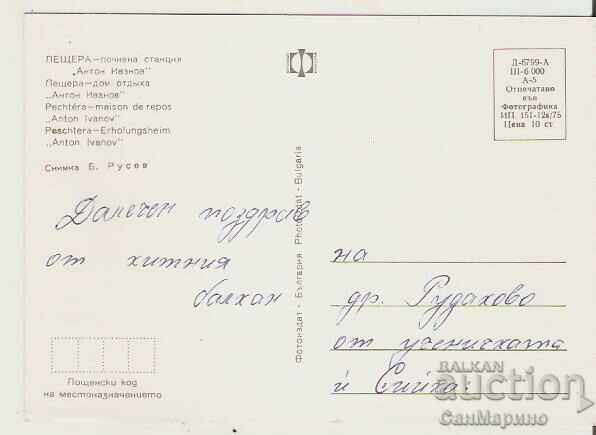 ПЕЩЕРА—почивна станция
„Антон Иванов"
Пещера—дом отдыха
„Антон Иванов"
Pechtéra—maison de repos
"Anton Ivanov"
Peschtera—Erholungsheim
"Anton Ivanov"
Снимка Б. Русев
Далечен поздрав
от хитния
балкан
Пощенски код
на местоназначението
Фотоиздат - България Photoizdat - Bulgaria
Д-6799-А
Ш-6 000
А-5
Отпечатано
във
Фотографика
ИП 151-12а/75
Цена 10 ст
на
др. Рудаково
от ученичката
ѝ Сийка:
BALKAN
auction
СанМарино